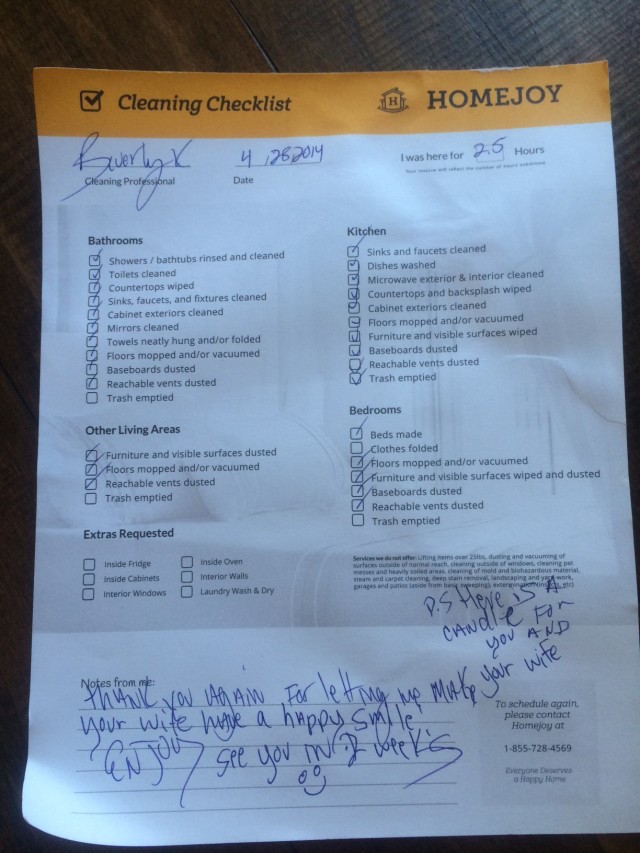 Cleaning Checklist
HOMEJOY
Beverly K
4 / 28 2014
I was here for 2.5 Hours
Cleaning Professional
Date
Bathrooms
Showers / bathtubs rinsed and cleaned
Toilets cleaned
Countertops wiped
Sinks, faucets, and fixtures cleaned
Cabinet exteriors cleaned
Mirrors cleaned
Towels neatly hung and/or folded
Floors mopped and/or vacuumed
Baseboards dusted
Reachable vents dusted
Trash emptied
Other Living Areas
Furniture and visible surfaces dusted
Floors mopped and/or vacuumed
Reachable vents dusted
Trash emptied
Extras Requested
Inside Fridge
Inside Cabinets
Interior Windows
Inside Oven
Interior Walls
Laundry Wash & Dry
Kitchen
Sinks and faucets cleaned
Dishes washed
Microwave exterior & interior cleaned
Countertops and backsplash wiped
Cabinet exteriors cleaned
Floors mopped and/or vacuumed
Furniture and visible surfaces wiped
Baseboards dusted
Reachable vents dusted
Trash emptied
Bedrooms
Beds made
Clothes folded
Floors mopped and/or vacuumed
Furniture and visible surfaces wiped and dusted
Baseboards dusted
Reachable vents dusted
Trash emptied
Services we do not offer: Lifting items over 25lbs, dusting and vacuuming of
surfaces outside of normal reach, cleaning outside of windows, cleaning pet
messes and heavily soiled areas, cleaning of mold and biohazardous material,
steam and carpet cleaning, deep stain removal, landscaping and yard work,
garages and patios (aside from basic sweeping), etc)
P.S there is a
candle for
you and
your wife
Notes from me:
Thank you again for letting me make
your wife have a happy smile
ENJOY see you in 2 week's
To schedule again,
please contact
Homejoy at
1-855-728-4569
Everyone Deserves
a Happy Home